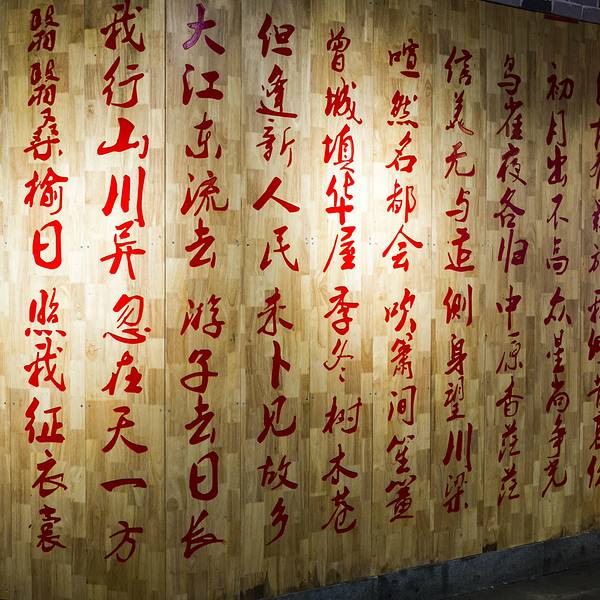 翳翳桑榆日照我征衣裳
我行山川异忽在天一方
大江东流去游子去日长
但逢新人民未卜见故乡
曾城填华屋季冬树木苍
喧然名都会吹箫间笙簧
信美无与适侧身望川梁
鸟雀夜各归中原香茫茫
初月出不高众星尚争光